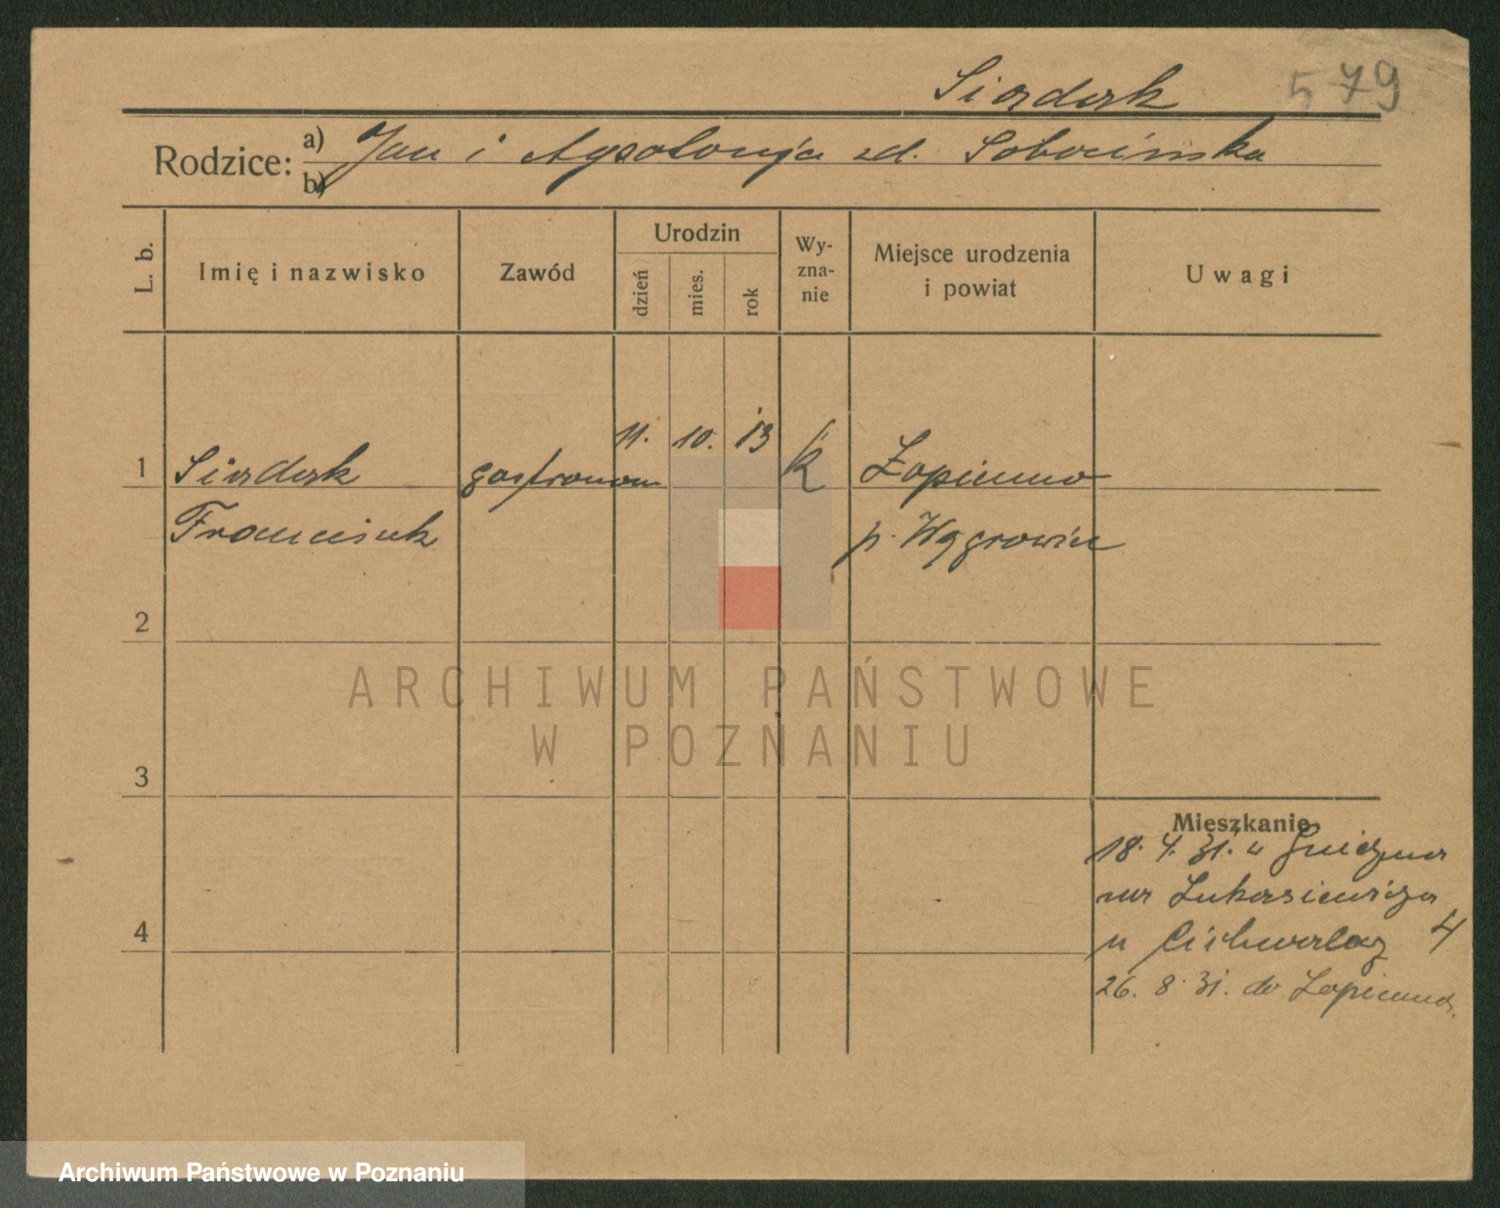 Sizdork
579
Rodzice: a) Jan i Apolonja zd. Sobocińska
b)
L. b.
Imię i nazwisko
Zawód
Urodzin
dzień
mies.
rok
Wy-
zna-
nie
Miejsce urodzenia
i powiat
Uwagi
11. 10. 13 k
1 gastronom Łopienno
Franciszek p. Wągrowiec
2
ARCHIWUM PAŃSTWOWE
W POZNANIU
3
Mieszkanie
18. 4. 31. z Gniezna
na Łukasiewicza
u 4
4
26. 8. 31. do Łopienna.
Archiwum Państwowe w Poznaniu